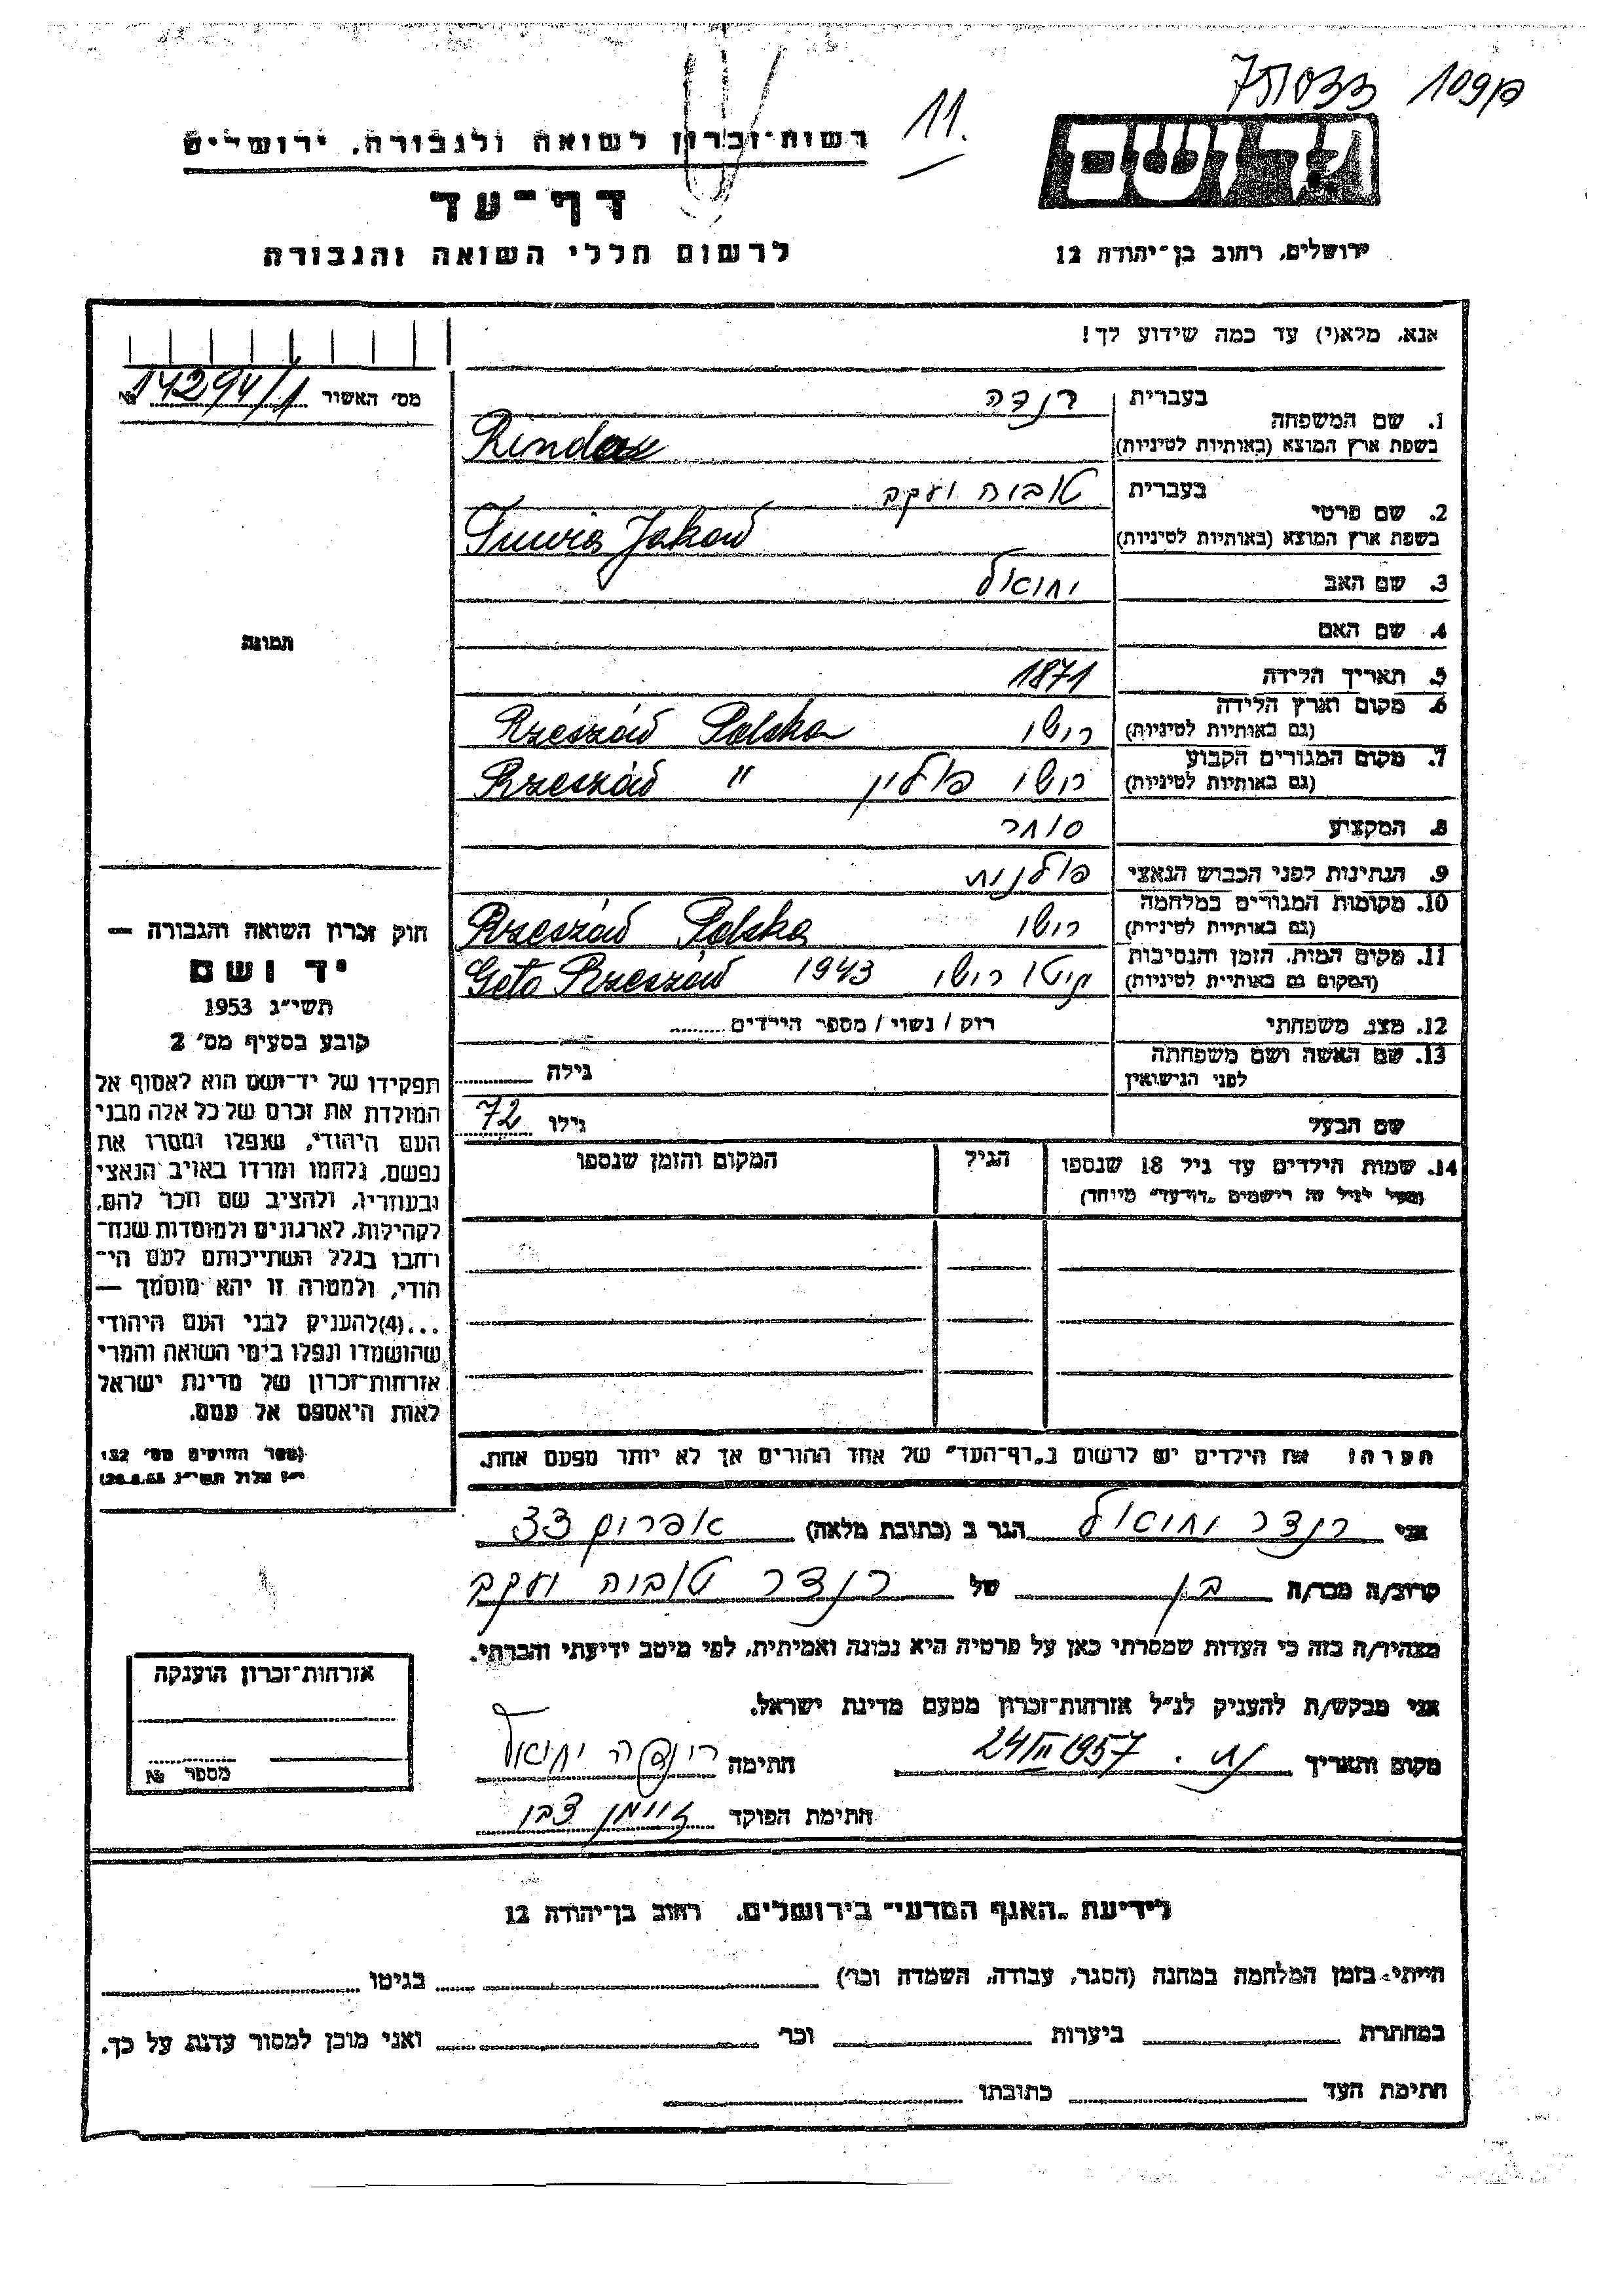 11.
רשות־זכרון לשואה ולגבורה, ירושלים
דף־עד
לרשום חללי השואה והגבורה
יד ושם
ירושלים, רחוב בן־יהודה 12
אנא, מלא(י) עד כמה שידוע לך!
מס׳ האשור 14294/1 №
תמונה
1. שם המשפחה
בעברית רנדה
בשפת ארץ המוצא (באותיות לטיניות)
2. שם פרטי
בעברית טוביה יעקב
בשפת ארץ המוצא (באותיות לטיניות) Tuwia Jakow
3. שם האב יחיאל
4. שם האם
5. תאריך הלידה 1871
6. מקום וארץ הלידה
(גם באותיות לטיניות) רישו Rzeszów Polska
7. מקום המגורים הקבוע
(גם באותיות לטיניות) רישו פולין Rzeszów "
8. המקצוע סוחר
9. הנתינות לפני הכבוש הנאצי פולנית
10. מקומות המגורים במלחמה
(גם באותיות לטיניות) רישו Rzeszów Polska
11. מקום המות, הזמן והנסיבות
(המקום גם באותיות לטיניות) גיטו רישו 1943 Geto Rzeszów
12. מצב משפחתי רוק / נשוי / מספר הילדים
13. שם האשה ושם משפחתה
לפני הנישואין גילה
שם הבעל גילו 72
14. שמות הילדים עד גיל 18 שנספו הגיל המקום והזמן שנספו
(מעל לגיל זה רישמים „דף־עד” מיוחד)
הערה: את הילדים יש לרשום ב„דף־העד” של אחד ההורים אך לא יותר מפעם אחת.
חוק זכרון השואה והגבורה —
יד ושם
תשי״ג 1953
קובע בסעיף מס׳ 2
תפקידו של יד־ושם הוא לאסוף אל
המולדת את זכרם של כל אלה מבני
העם היהודי, שנפלו ומסרו את
נפשם, נלחמו ומרדו באויב הנאצי
ובעוזריו, ולהציב שם וזכר להם,
לקהילות, לארגונים ולמוסדות שנח־
רבו בגלל השתייכותם לעם הי־
הודי, ולמטרה זו יהא מוסמך —
...(4)להעניק לבני העם היהודי
שהושמדו ונפלו בימי השואה והמרי
אזרחות־זכרון של מדינת ישראל
לאות היאספם אל עמם.
(ספר החוקים מס׳ 132
אני רנדר יחיאל הגר ב (כתובת מלאה) אפרים 33
קרוב/ה מכר/ה בן של רנדר טוביה יעקב
מצהיר/ה בזה כי העדות שמסרתי כאן על פרטיה היא נכונה ואמיתית, לפי מיטב ידיעתי והכרתי.
אני מבקש/ת להעניק לנ״ל אזרחות־זכרון מטעם מדינת ישראל.
מקום ותאריך 24/II 1957 חתימה רינדה יחיאל
חתימת הפוקד
אזרחות־זכרון הוענקה
מספר №
לידיעת „האגף המדעי” בירושלים, רחוב בן־יהודה 12
הייתי בזמן המלחמה במחנה (הסגר, עבודה, השמדה וכו׳) בגיטו
במחתרת ביערות וכו׳ ואני מוכן למסור עדות על כך.
חתימת העד כתובתו